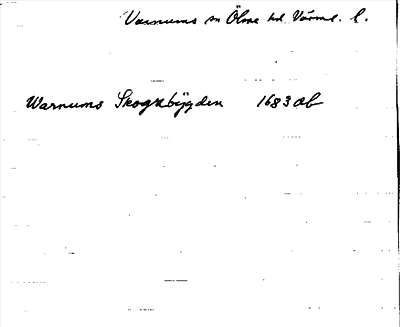 Varnums sn Ölme hd Värml. l.
Warnums Skogzbÿgden 1683 ab